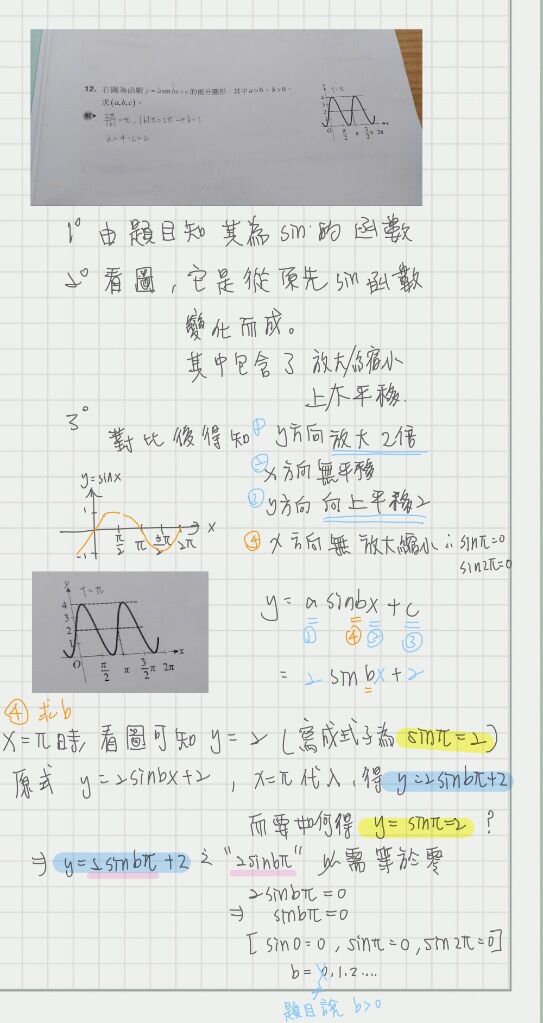 12. 右圖為函數 y=a sin bx+c 的部分圖形，其中 a>0，b>0，
求(a,b,c)。
解 2π/|b|=π，|b|π=2π → b=2
a=4-2=2
T=π
y
4
3
2
1
O π/2 π 3/2π 2π x
1° 由題目知 其為 sin 的 函數
2° 看圖，它是從原先 sin 函數
變化而成。
其中包含了 放大/縮小
上下平移.
3° 對比後得知 ① y方向 放大 2倍
② x方向 無平移
③ y方向 向上平移2
④ x方向 無 放大縮小 ∵ sinπ=0
sin2π=0
y=sinx
1
-1
π/2 π 3π/2 2π x
y
T=π
4
3
2
1
O π/2 π 3/2π 2π x
y = a sinbx + c
① ④ ② ③
= 2 sin bx + 2
④ 求b
x=π時, 看圖可知 y=2 (寫成式子為 sinπ=2)
原式 y=2sinbx+2 , x=π代入, 得 y=2sinbπ+2
而要如何得 y=sinπ=2 ?
⇒ y=2sinbπ+2 之 "2sinbπ" 必需等於零
2sinbπ=0
⇒ sinbπ=0
[ sin0=0 , sinπ=0, sin2π=0]
b= 0,1,2....
題目說 b>0